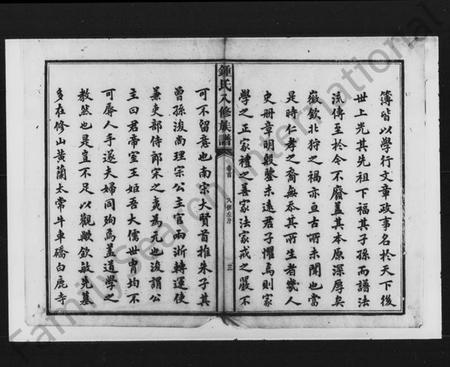 簿皆以學行文章政事名於天下後
世上光其先祖下福其子孫而譜法
流傳至於今不廢蓋其本原深厚矣
徽欽北狩之禍亦亘古所未聞也當
是時仁孝之裔無忝其所生者幾人
史冊章明殷鑒未遠君子懼焉則家
學之正家禮之善家法家戒之嚴不
鍾氏八修族譜
卷首
三
可不留意也南宋大賢首推朱子其
曾孫浚尚理宗公主官兩浙轉運使
兼吏部侍郎宋之夷為元也浚謂公
主曰君帝室王姬吾大儒世胄均不
可辱人手遂夫婦同殉焉蓋道學之
教然也是豈不足以觀歟欽敏先墓
多在修山黃蘭太常牛車礄白鹿寺
FamilySearch International